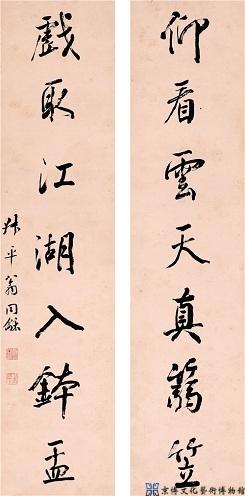 仰看雲天真蒻笠
戲取江湖入鉢盂
叔平翁同龢
京博文化藝術博物館